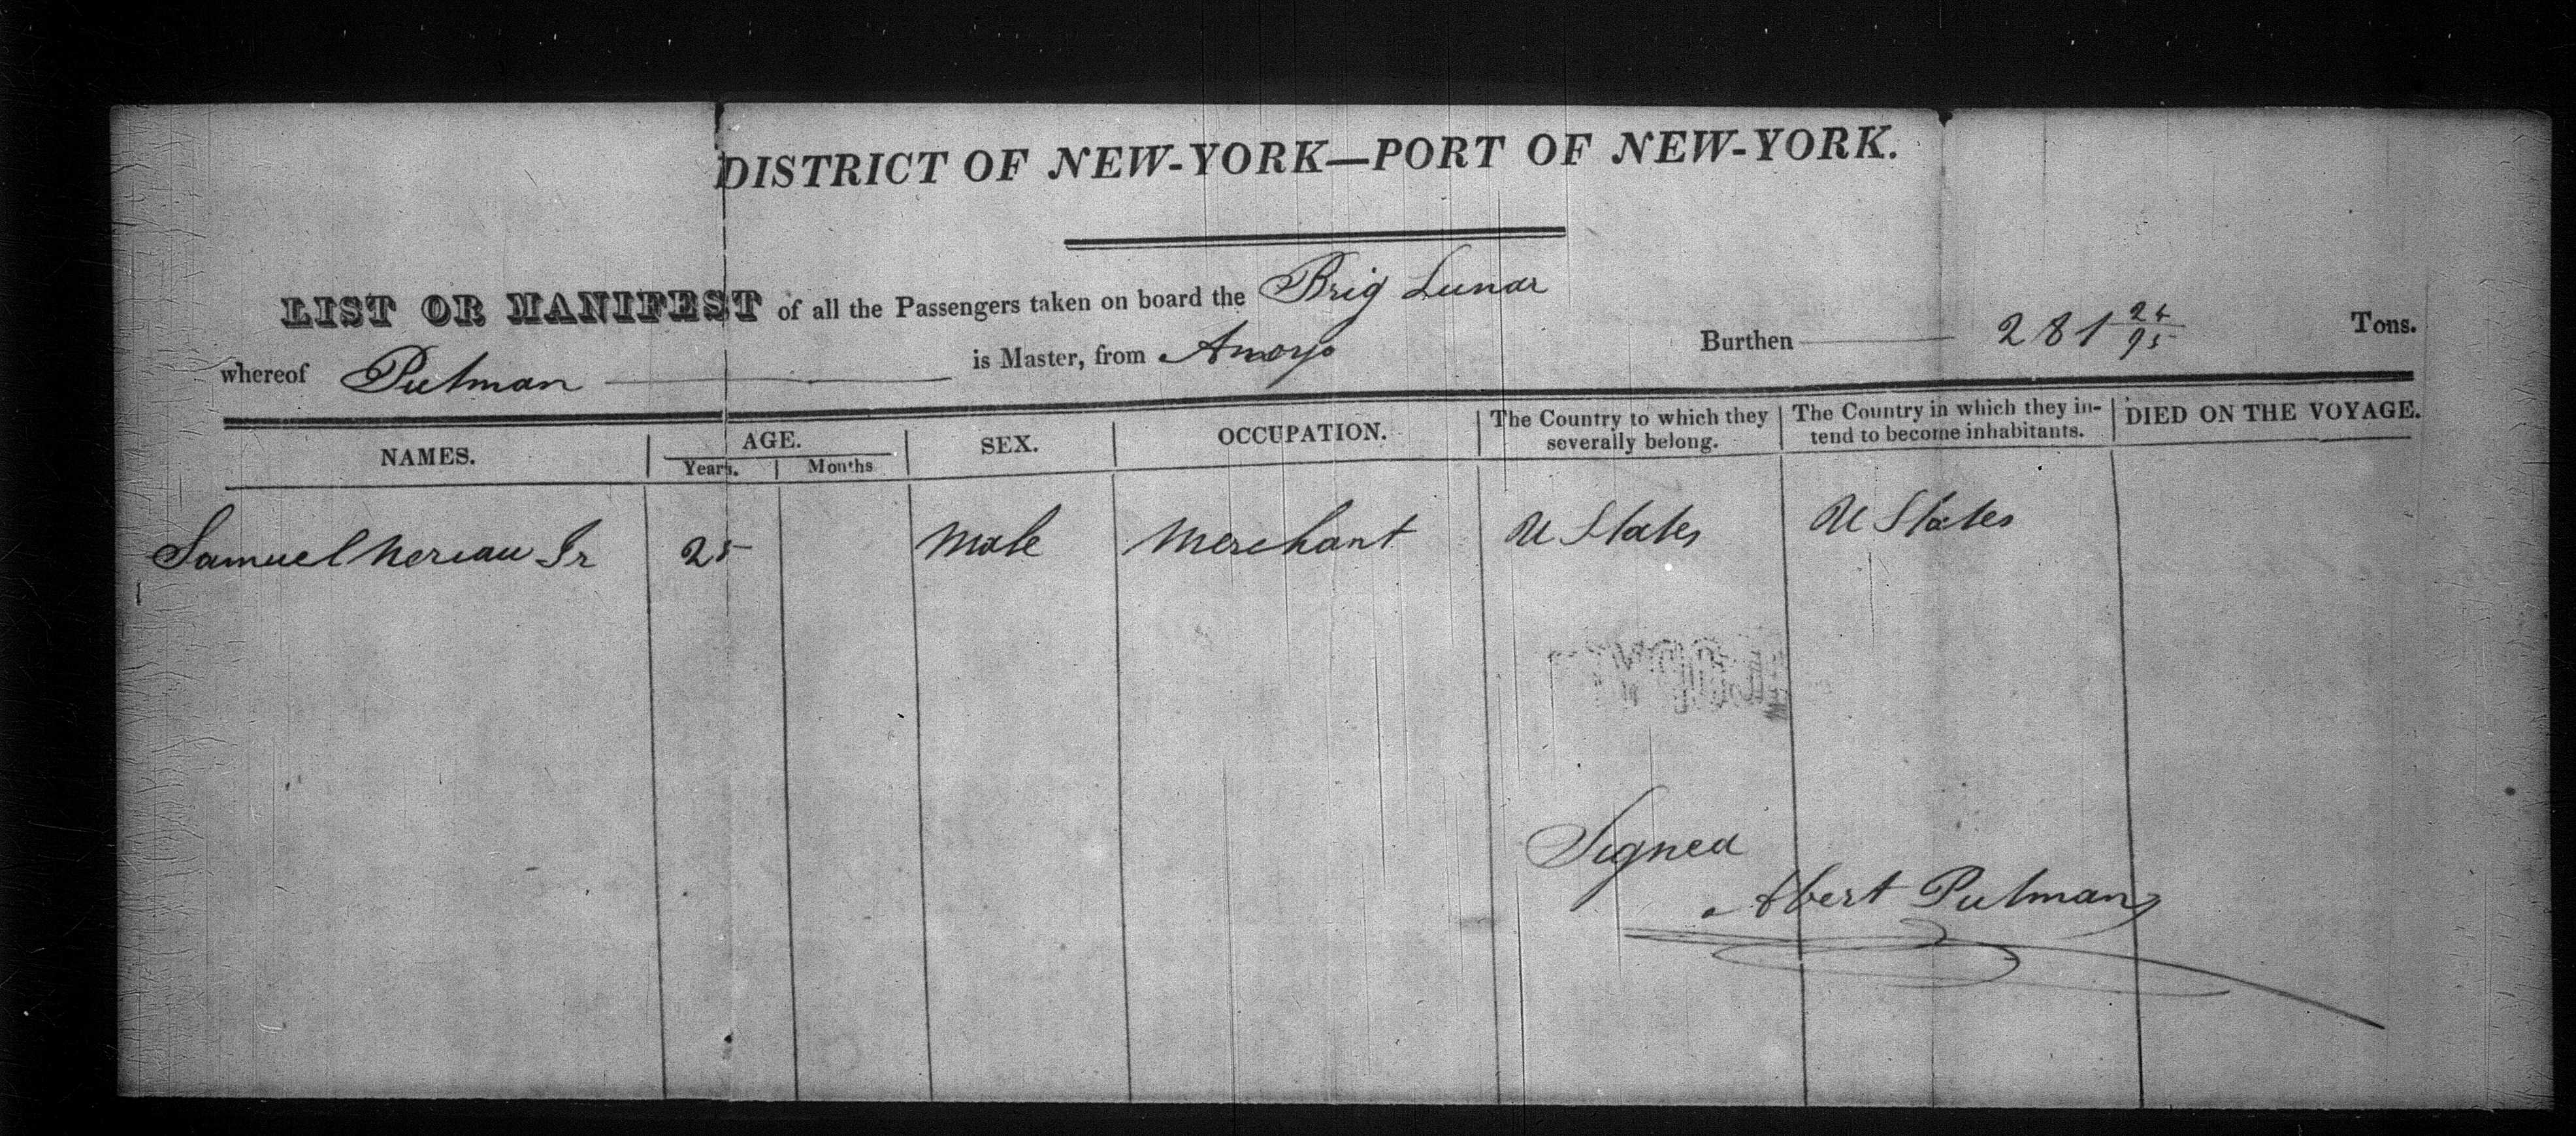 DISTRICT OF NEW-YORK—PORT OF NEW-YORK.
LIST OR MANIFEST of all the Passengers taken on board the Brig Lunar
Burthen 281 24/95 Tons.
whereof Putman is Master, from Amoy
NAMES. AGE. SEX. OCCUPATION. The Country to which they severally belong. The Country in which they intend to become inhabitants. DIED ON THE VOYAGE.
Years. Months
Samuel Jr 25 Male Merchant U States U States
Signed
Albert Putman